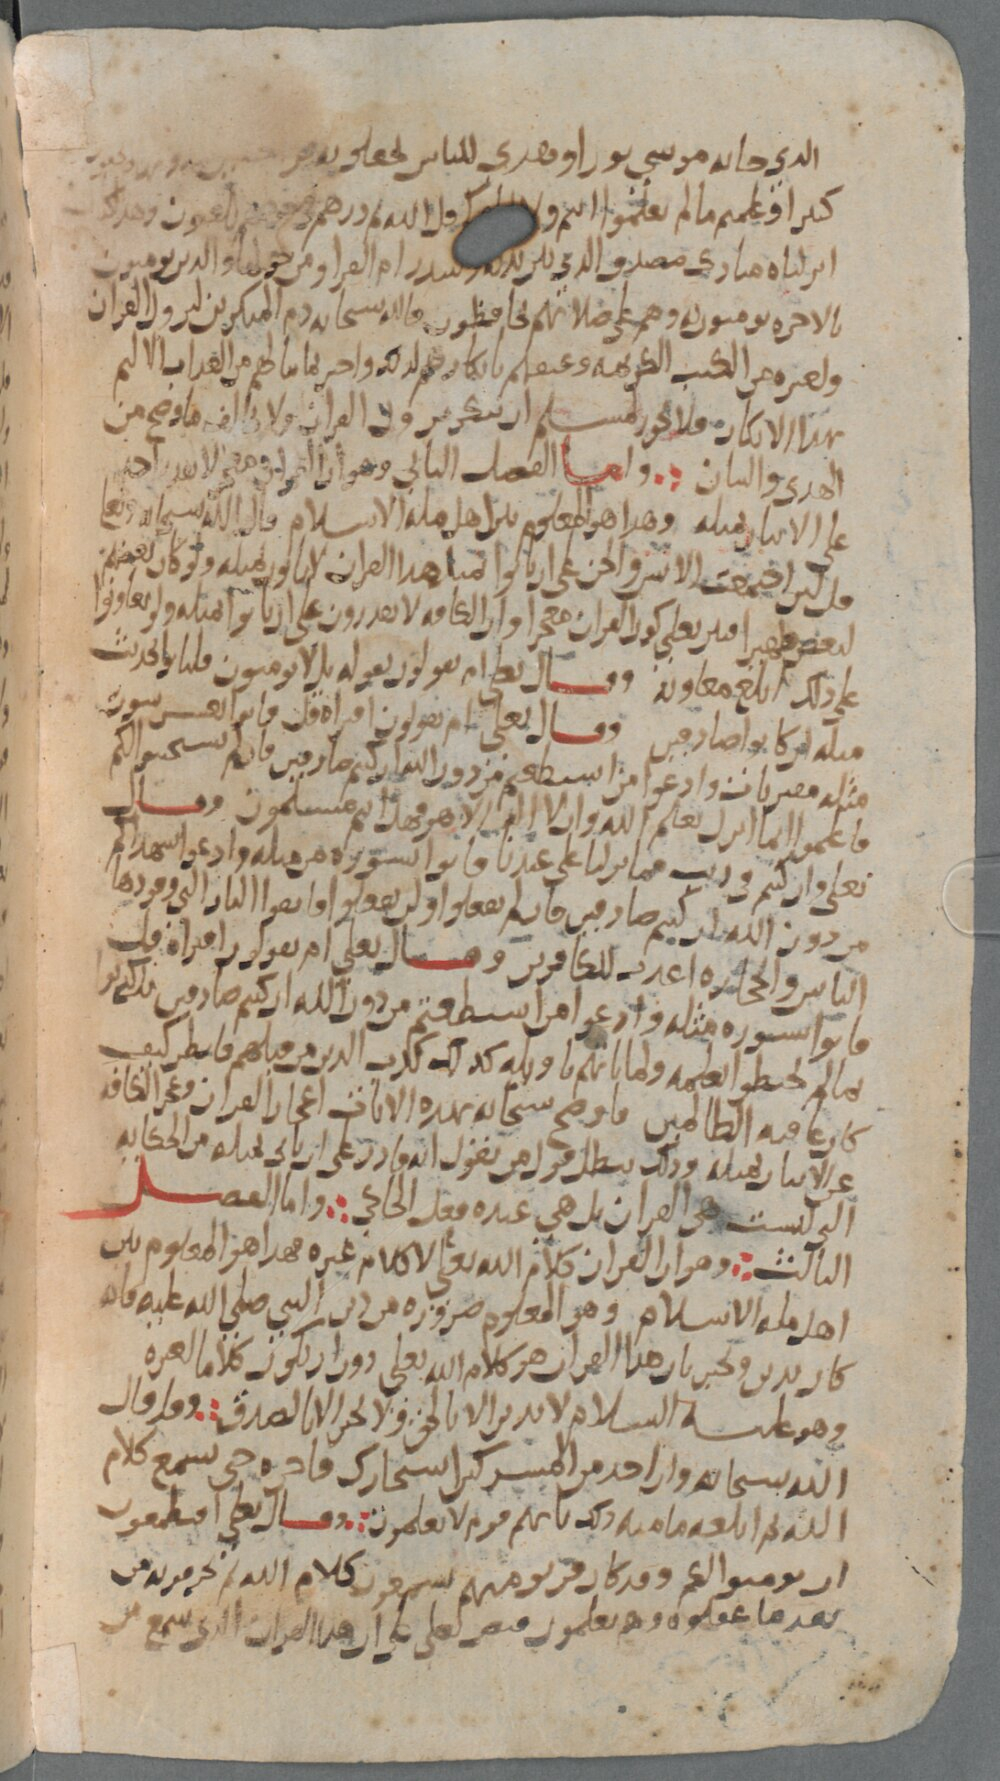 الذي جا به موسى نورا وهدى للناس تجعلونه
كثيرا وعلمتم ما لم تعلموا انتم ولا قل الله ثم ذرهم في خوضهم يلعبون وهذا كتاب
انزلناه مبارك مصدق الذي بين يديه ولتنذر ام القرا ومن حولها والذين يومنون
بالاخره يومنون به وهم على صلاتهم يحافظون فالله سبحانه ذم المنكرين لنزول القران
ولغيره من الكتب الكريمه وعنفهم بانكارهم لذلك واخبر بما لهم من العذاب الاليم
بهذا الانكار فلا يجوز لمسلم ان ينكر نزول القران ولا يخالف ما وضح من
الهدى والبيان واما الفصل الثاني وهو ان القران معجز لا يقدر احد
على الاتيان بمثله وهذا هو المعلوم بين اهل مله الاسلام قال الله سبحانه وتعالى
قل لين اجتمعت الانس والجن على ان ياتوا بمثل هذا القران لا ياتون بمثله ولو كان بعضهم
لبعض ظهيرا فبين تعلى كون القران معجزا وان الكافه لا يقدرون على ان ياتوا بمثله ولو تعاونوا
على ذلك ابلغ معاونة وقال تعلى ام يقولون تقوله بل لا يومنون فلياتوا بحديث
مثله ان كانوا صادقين وقال تعلى ام يقولون افتراه قل فاتوا بعشر سور
مثله مفتريات وادعوا من استطعتم من دون الله ان كنتم صادقين فان لم يستجيبوا لكم
فاعلموا انما انزل بعلم الله وان لا اله الا هو فهل انتم مسلمون وقال
تعلى وان كنتم في ريب مما نزلنا على عبدنا فاتوا بسوره من مثله وادعوا شهداكم
من دون الله ان كنتم صادقين فان لم تفعلوا ولن تفعلوا فاتقوا النار التي وقودها
الناس والحجاره اعدت للكافرين وقال تعلى ام يقولون افتراه قل
فاتوا بسوره مثله وادعوا من استطعتم من دون الله ان كنتم صادقين بل كذبوا
بما لم يحيطوا بعلمه ولما ياتهم تاويله كذلك كذب الذين من قبلهم فانظر كيف
كان عاقبه الظالمين فاوضح سبحانه بهذه الايات اعجاز القران وعجز الكافه
عن الاتيان بمثله وذلك يبطل قول من يقول انه قادر على ان ياتي بمثله من الحكايه
التي ليست هي القران بل هي عنده فعل الحاكي واما الفصل
الثالث وهو ان القران كلام الله تعلى لا كلام غيره فهذا هو المعلوم بين
اهل مله الاسلام وهو المعلوم ضرورة من دين النبي صلى الله عليه فانه
كان يدين ويخبر بان هذا القران هو كلام الله تعلى دون ان يكون كلاما لغيره
وهو عليه السلام لا يدين الا بالحق ولا يخبر الا بالصدق وقد قال
الله سبحانه وان احد من المشركين استجارك فاجره حتى يسمع كلام
الله ثم ابلغه مامنه ذلك بانهم قوم لا يعلمون وقال تعلى افتطمعون
ان يومنوا لكم وقد كان فريق منهم يسمعون كلام الله ثم يحرفونه من
بعد ما عقلوه وهم يعلمون فنص تعلى على ان هذا القران الذي سمع من